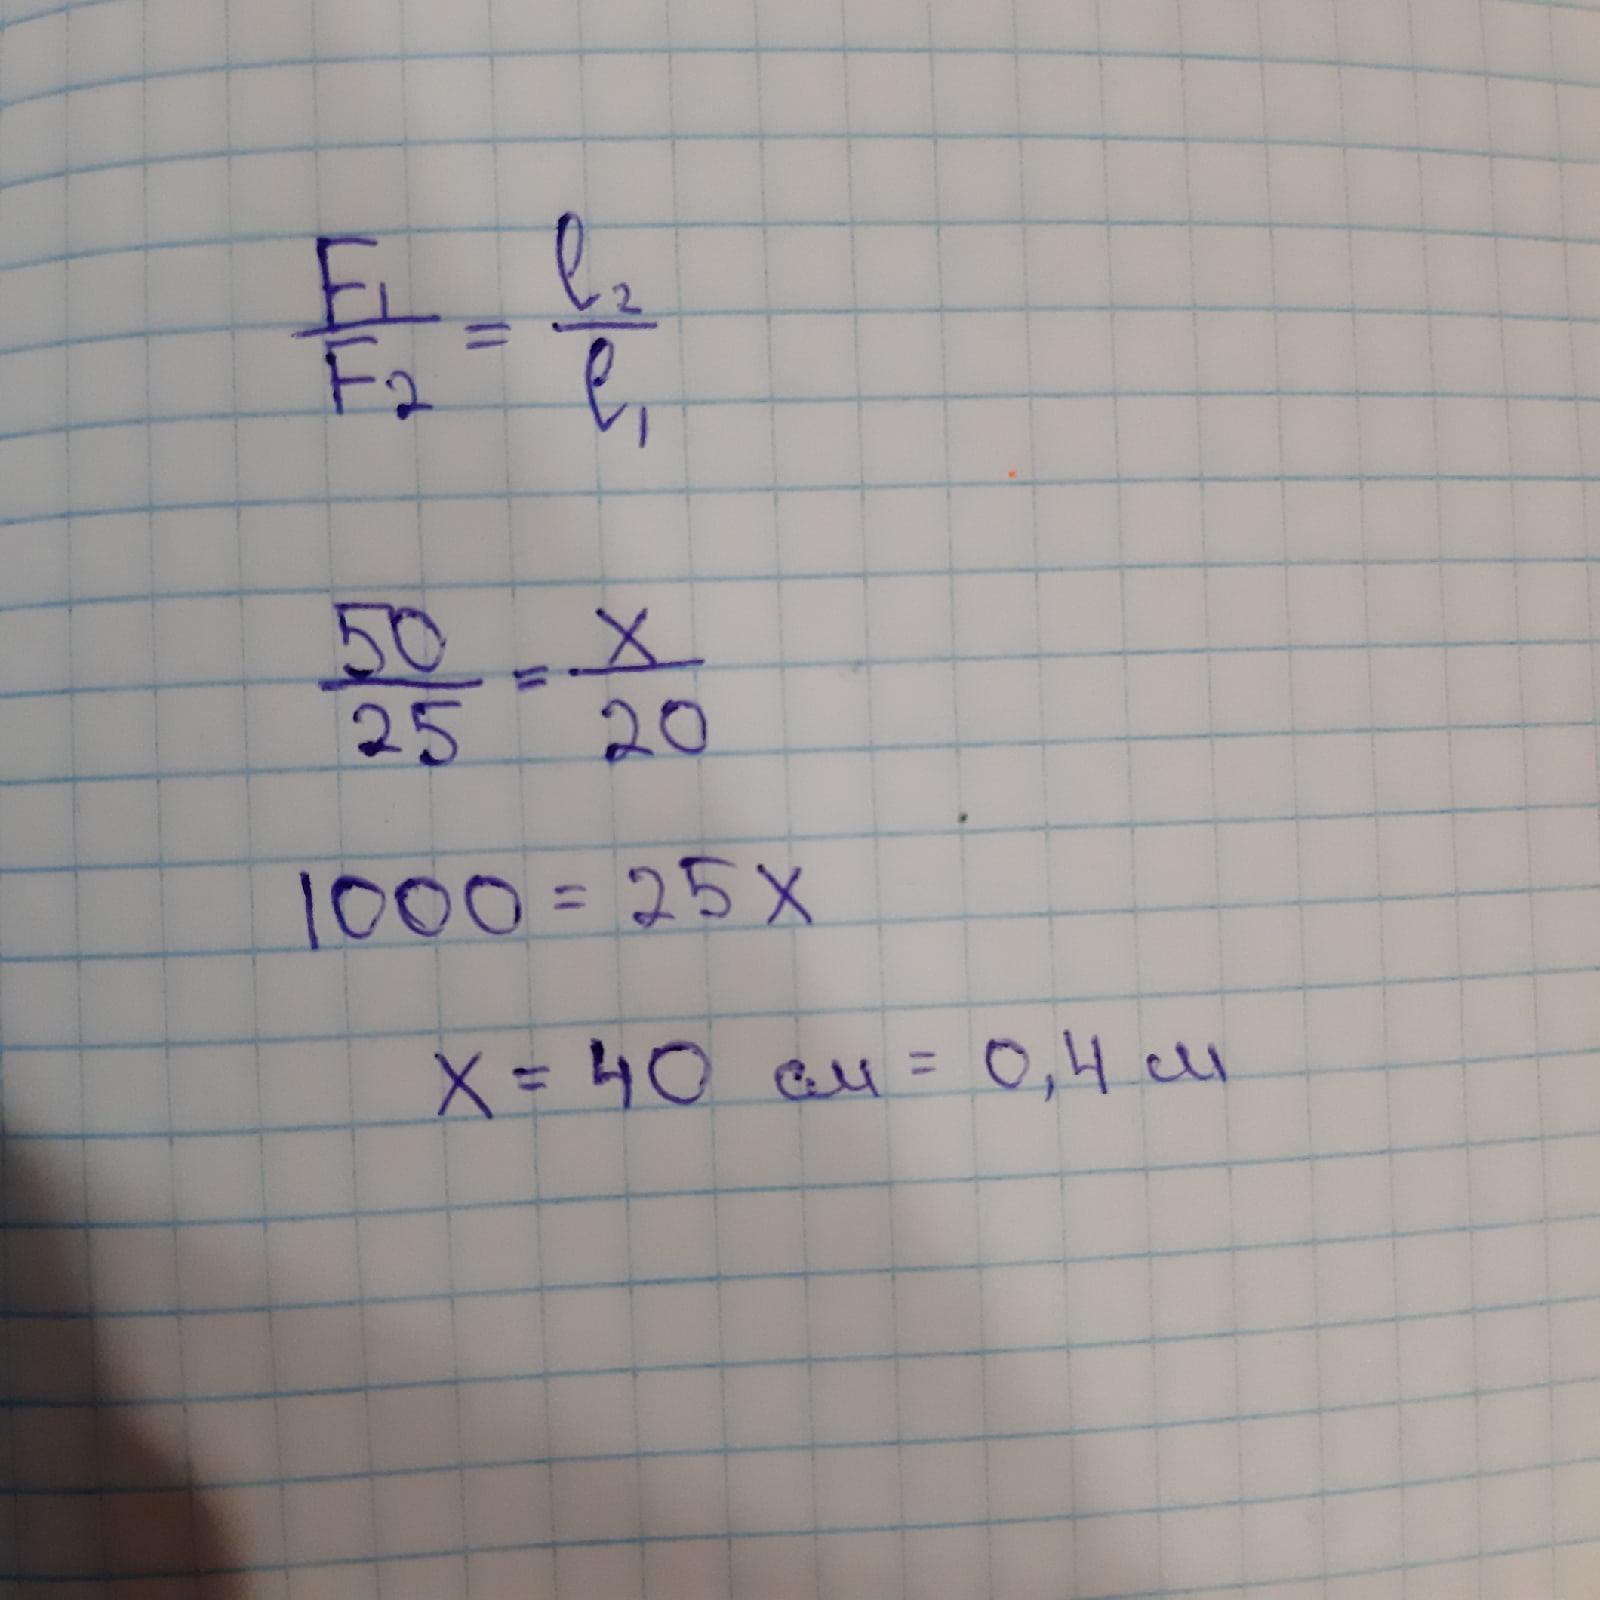 F₁/F₂ = ℓ₂/ℓ₁
50/25 = x/20
1000 = 25x
x = 40 см = 0,4 м